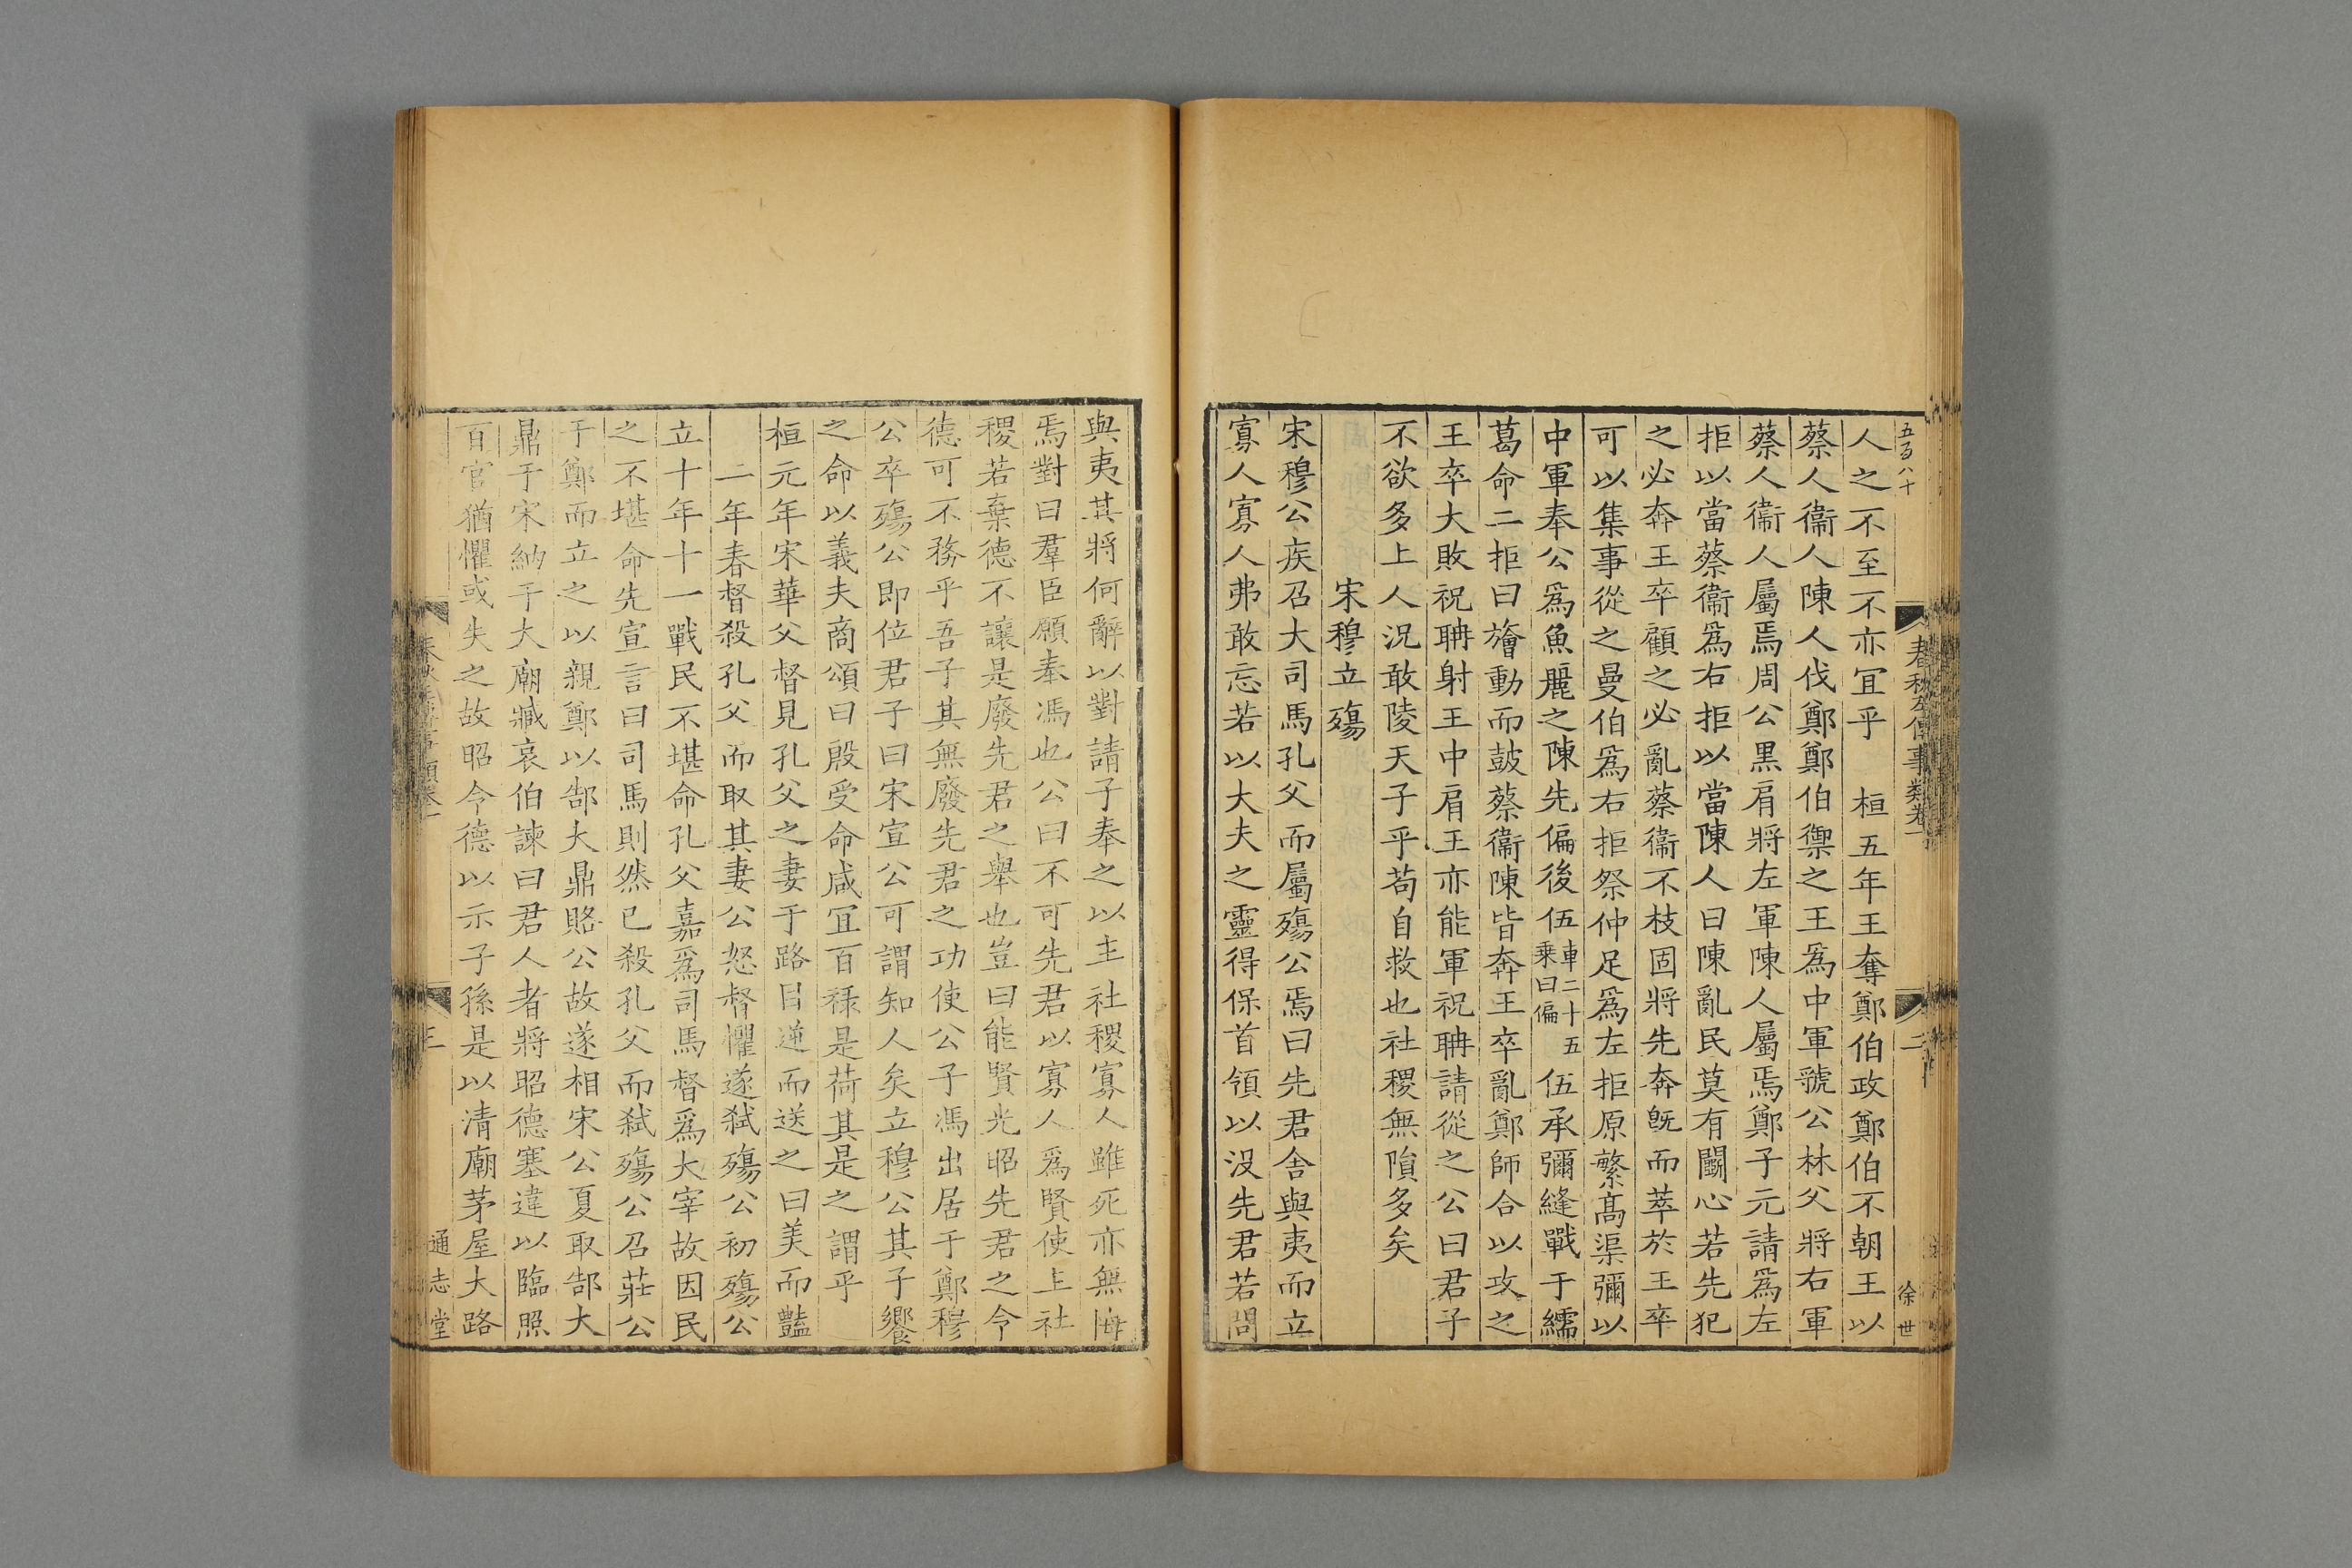 五百八十
春秋左傳事類卷一
二
徐世
人之不至不亦冝乎　桓五年王奪鄭伯政鄭伯不朝王以
蔡人衞人陳人伐鄭鄭伯禦之王爲中軍虢公林父將右軍
蔡人衞人屬焉周公黑肩將左軍陳人屬焉鄭子元請爲左
拒以當蔡衞爲右拒以當陳人曰陳亂民莫有鬬心若先犯
之必奔王卒顧之必亂蔡衞不枝固將先奔旣而萃於王卒
可以集事從之曼伯爲右拒祭仲足爲左拒原繁高渠彌以
中軍奉公爲魚麗之陳先偏後伍車二十五乗曰偏伍承彌縫戰于繻
葛命二拒曰旝動而鼓蔡衞陳皆奔王卒亂鄭師合以攻之
王卒大敗祝聃射王中肩王亦能軍祝聃請從之公曰君子
不欲多上人況敢陵天子乎苟自救也社稷無隕多矣
宋穆立殤
宋穆公疾召大司馬孔父而屬殤公焉曰先君舍與夷而立
寡人寡人弗敢忘若以大夫之靈得保首領以没先君若問
與夷其將何辭以對請子奉之以主社稷寡人雖死亦無悔
焉對曰羣臣願奉馮也公曰不可先君以寡人爲賢使主社
稷若棄德不讓是廢先君之舉也豈曰能賢光昭先君之令
德可不務乎吾子其無廢先君之功使公子馮出居于鄭穆
公卒殤公即位君子曰宋宣公可謂知人矣立穆公其子饗
之命以義夫商頌曰殷受命咸冝百祿是荷其是之謂乎
桓元年宋華父督見孔父之妻于路目逆而送之曰美而豔
二年春督殺孔父而取其妻公怒督懼遂弑殤公初殤公
立十年十一戰民不堪命孔父嘉爲司馬督爲大宰故因民
之不堪命先宣言曰司馬則然已殺孔父而弑殤公召莊公
于鄭而立之以親鄭以郜大鼎賂公故遂相宋公夏取郜大
鼎于宋納于大廟臧哀伯諫曰君人者將昭德塞違以臨照
百官猶懼或失之故昭令德以示子孫是以清廟茅屋大路
三
通志堂